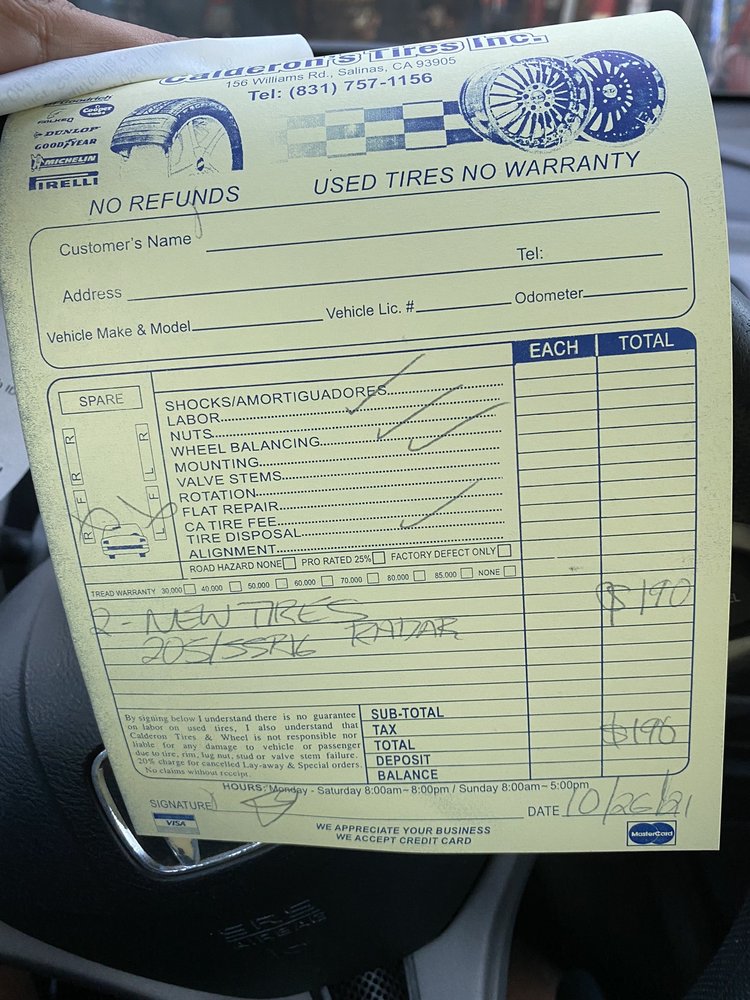 Calderon's Tires Inc.
156 Williams Rd., Salinas, CA 93905
Tel: (831) 757-1156
DUNLOP
GOODYEAR
MICHELIN
PIRELLI
NO REFUNDS
USED TIRES NO WARRANTY
Customer's Name
Tel:
Address
Vehicle Make & Model
Vehicle Lic. #
Odometer
EACH
TOTAL
SPARE
R
R
F
F
R
L
SHOCKS/AMORTIGUADORES
LABOR
NUTS
WHEEL BALANCING
MOUNTING
VALVE STEMS
ROTATION
FLAT REPAIR
CA TIRE FEE
TIRE DISPOSAL
ALIGNMENT
ROAD HAZARD NONE PRO RATED 25% FACTORY DEFECT ONLY
TREAD WARRANTY 30,000 40,000 50.000 60.000 70.000 80.000 85.000 NONE
2- NEW TIRES $190
205/55R16 RADAR
By signing below I understand there is no guarantee
on labor on used tires, I also understand that
Calderon Tires & Wheel is not responsible nor
liable for any damage to vehicle or passenger
due to tire, rim, lug nut, stud or valve stem failure.
20% charge for cancelled Lay-away & Special orders.
No claims without receipt.
SUB-TOTAL
TAX
TOTAL $190
DEPOSIT
BALANCE
HOURS: Monday - Saturday 8:00am~8:00pm / Sunday 8:00am~5:00pm
SIGNATURE
DATE 10/26/21
VISA
WE APPRECIATE YOUR BUSINESS
WE ACCEPT CREDIT CARD
MasterCard
SRS
AIRBAG